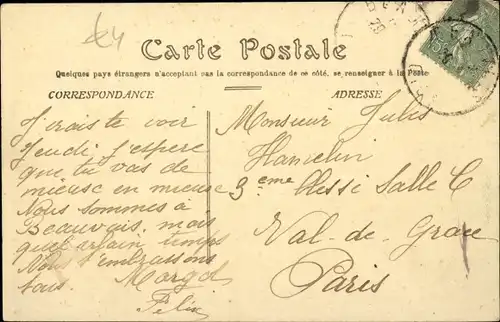 €4
Carte Postale
Quelques pays étrangers n'acceptant pas la correspondance de ce côté, se renseigner à la Poste
CORRESPONDANCE
ADRESSE
J'irais te voir
Jeudi J'espère
que tu vas de
mieux en mieux
Nous sommes à
Beauvais, mais
quel temps
Nous t'embrassons
tous.
Félix
Monsieur Jules
Hamelin
3eme Salle C
Val-de-Grace
Paris